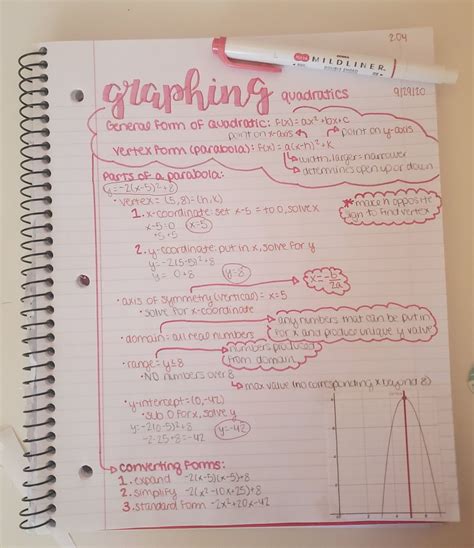 2.04
MILDLINER
graphing quadratics
9/29/20
General form of quadratic: F(x)=ax²+bx+c
point on x-axis point on y-axis
vertex form (parabola): F(x)=a(x-h)²+k
width, larger=narrower
determines open up or down
parts of a parabola:
y=-2(x-5)²+8
• vertex = (5,8)=(h,k)
* make h opposite
sign to find vertex
1. x-coordinate: set x-5 = to 0, solve x
x-5=0 x=5
+5 +5
2. y-coordinate: put in x, solve for y
y=-2(5-5)²+8
y= 0+8 y=8
x=-b/2a
• axis of symmetry (vertical)= x=5
• solve for x-coordinate
any numbers that can be put in
for x and produce unique y value
• domain= all real numbers
numbers produced
from domain
• range= y≤8
• NO numbers over 8
max value (no corresponding x beyond 8)
• y-intercept=(0,-42)
• sub 0 for x, solve y
y=-2(0-5)²+8
-2·25+8=-42 y=-42
converting forms:
1. expand -2(x-5)(x-5)+8
2. simplify -2(x²-10x+25)+8
3. standard form -2x²+20x-42